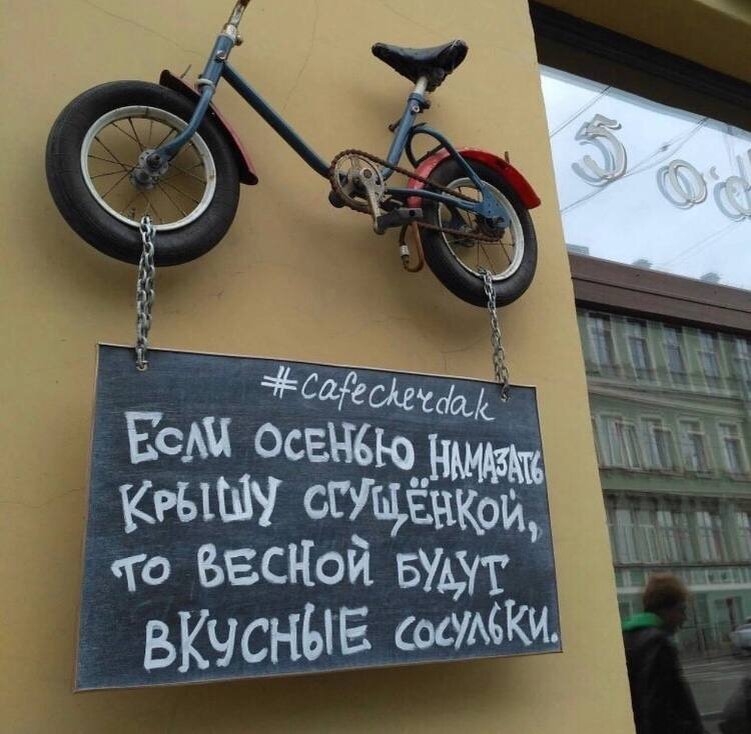 #cafecherdak
Если осенью намазать
крышу сгущёнкой,
то весной будут
вкусные сосульки.